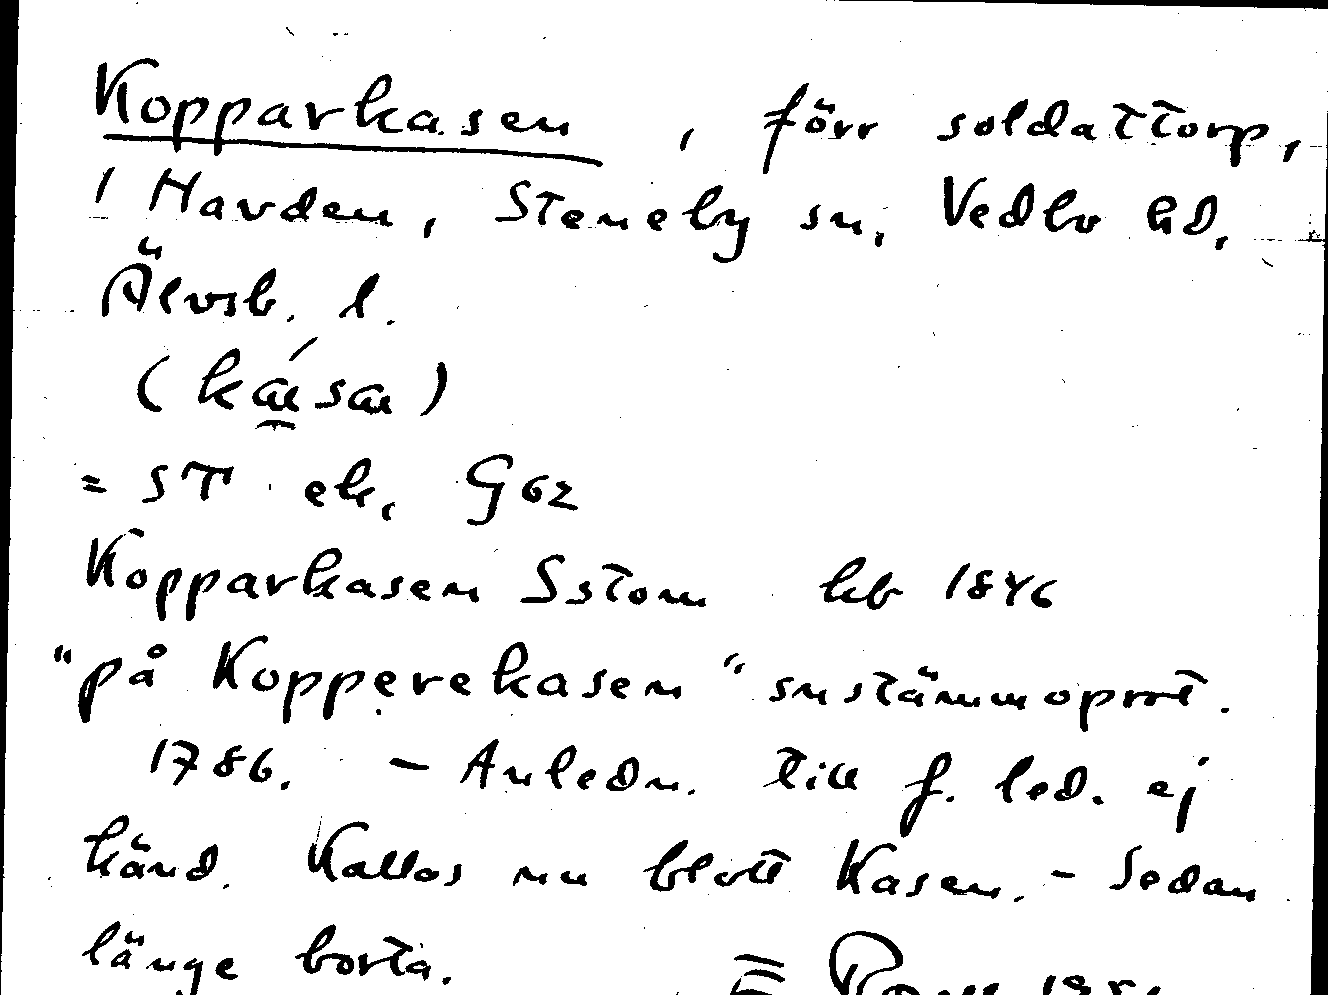 Kopparkasen, förr soldattorp,
/ Harden, Steneby sn, Vedbo hd,
Älvsb. l.
(
= ST ek, G62
Kopparkasen Sstom hb 1846
"på Kopperekasen" snstämmoprot.
1786. – Anledn. till f. led. ej
känd. Kallas nu blott Kasen. – Sedan
länge borta.